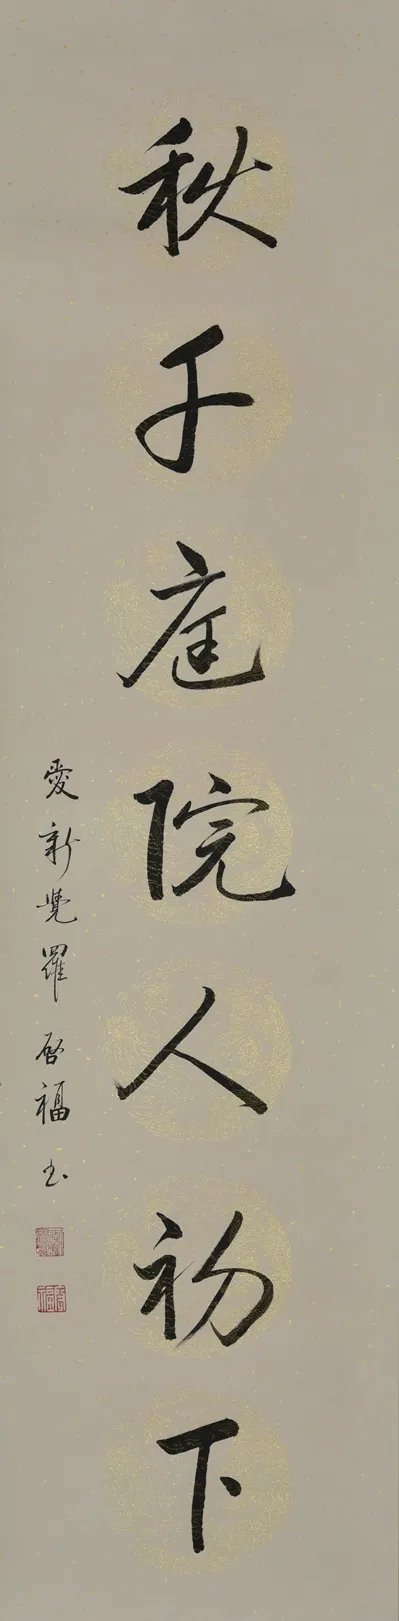 秋千庭院人初下
愛新覺羅启福书